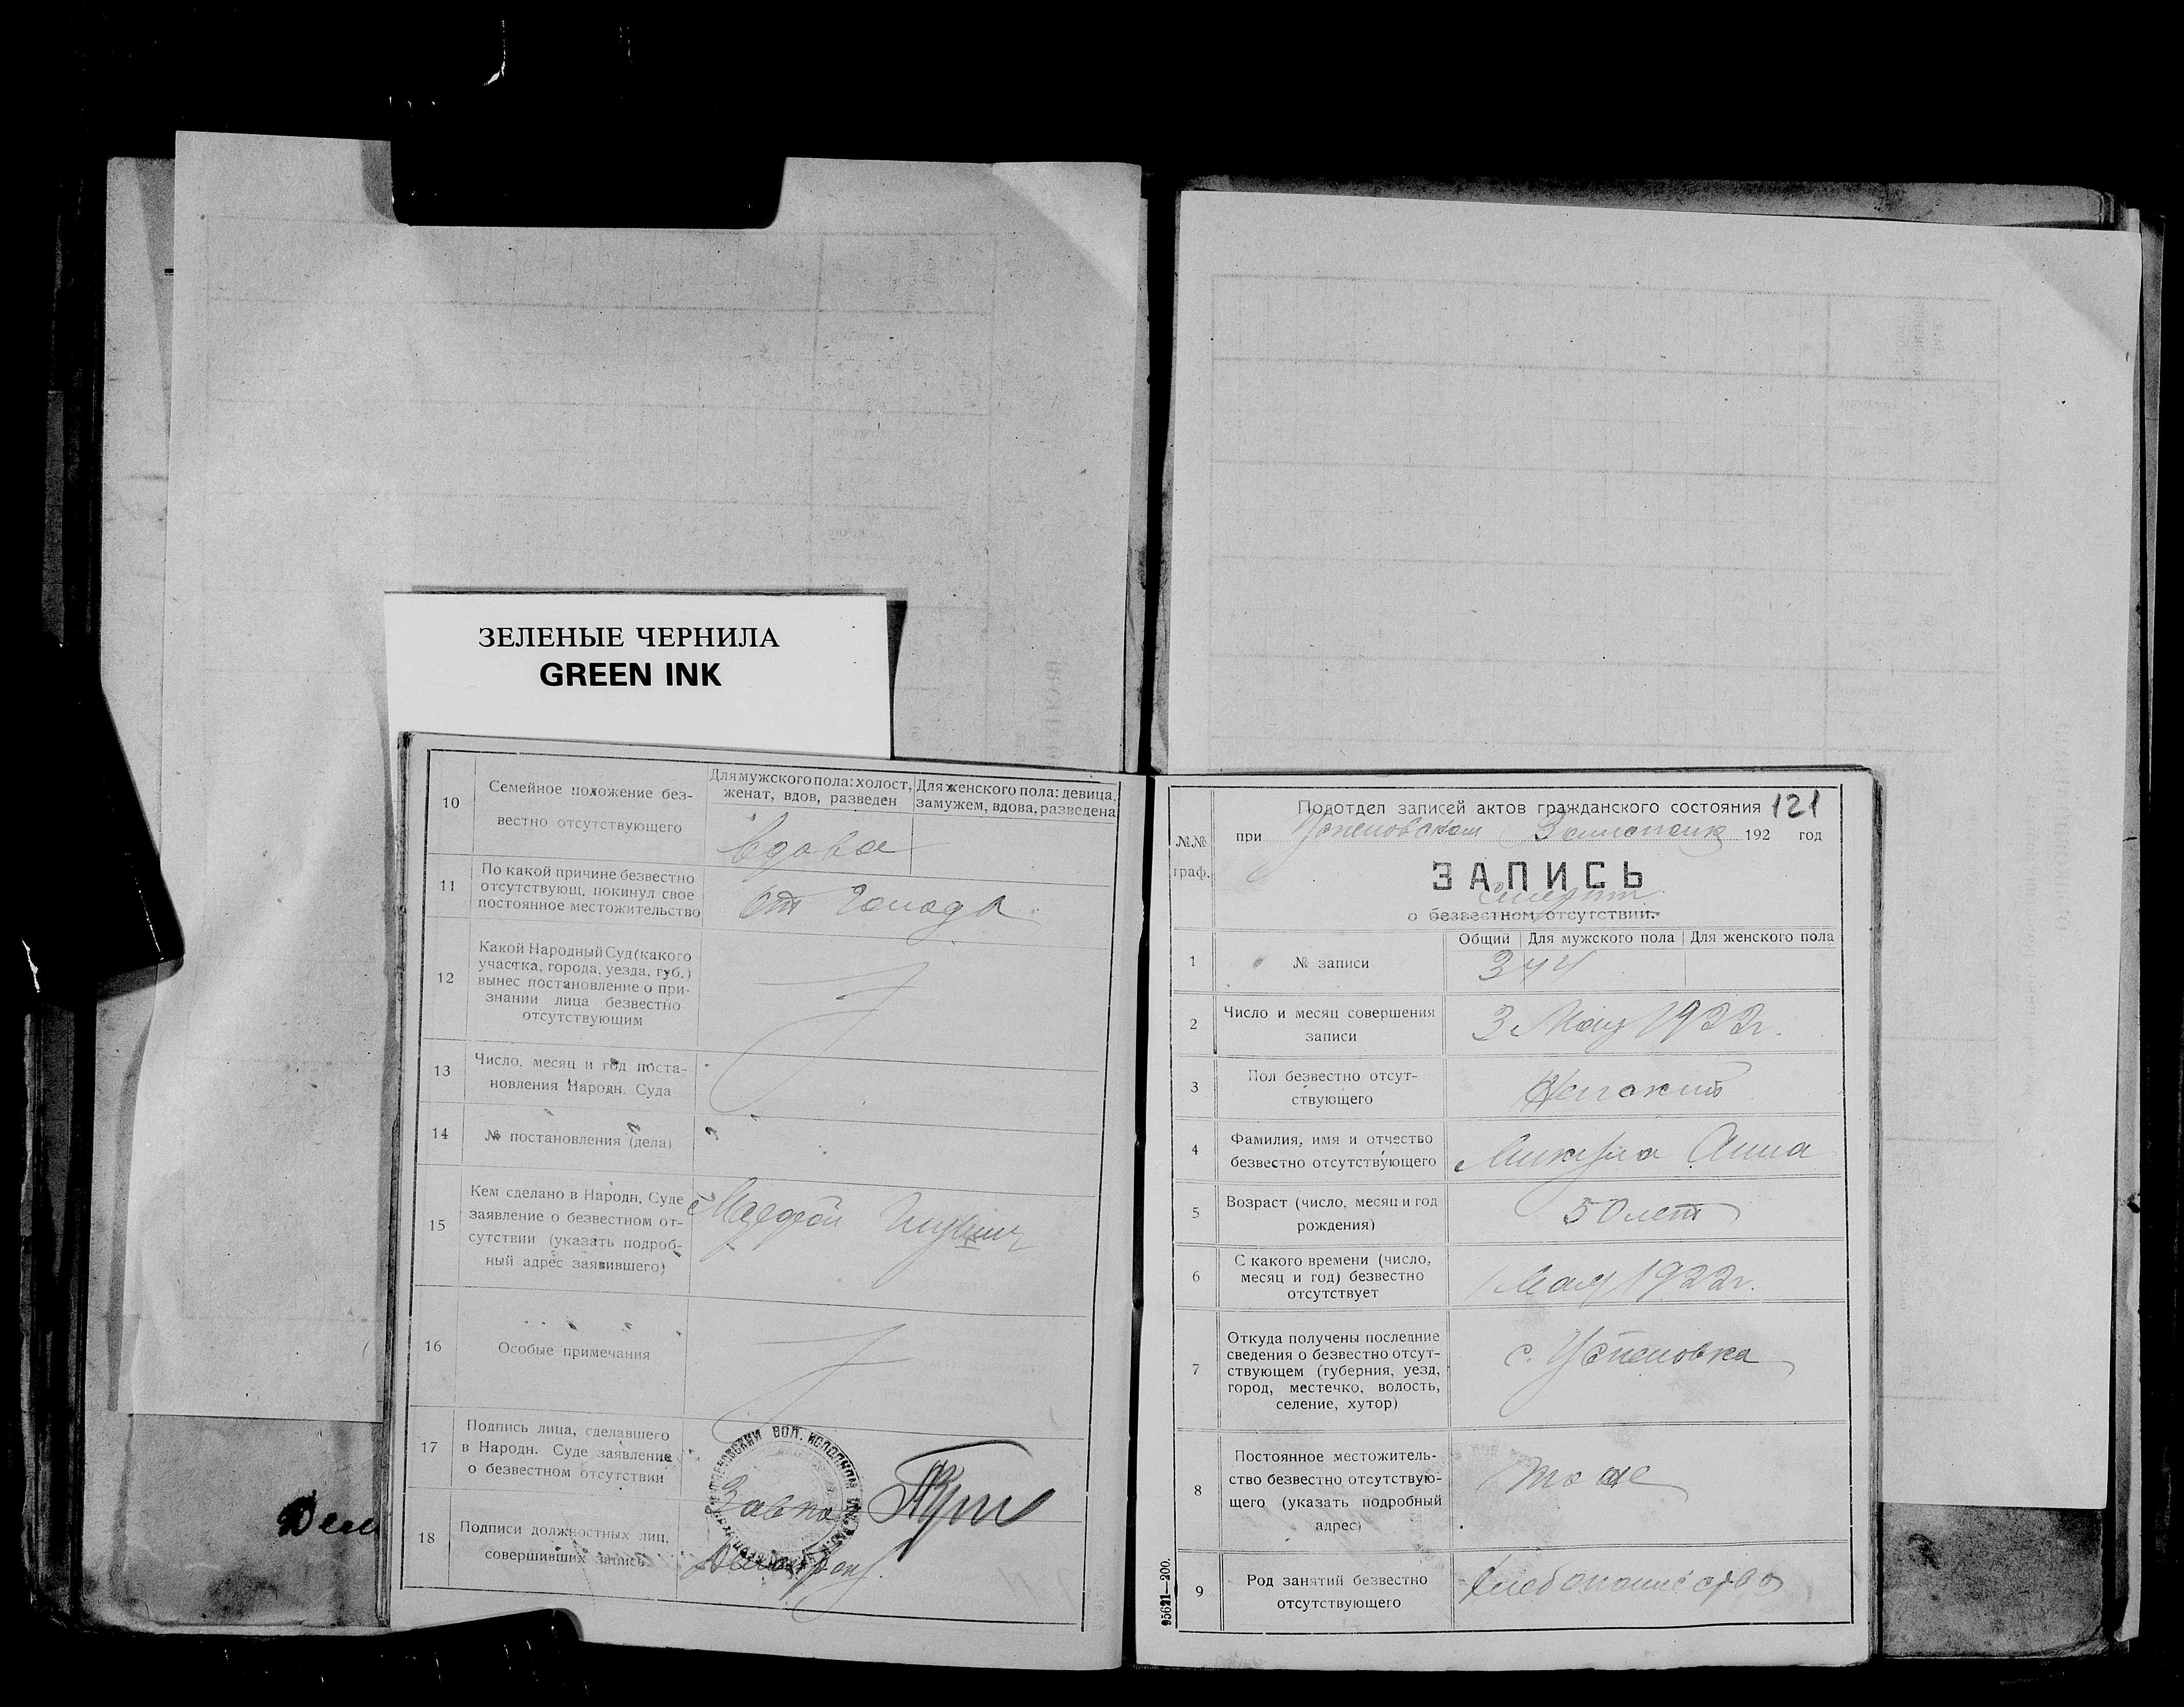 ЗЕЛЕНЫЕ ЧЕРНИЛА
GREEN INK
10
Семейное положение без-
вестно отсутствующего
Для мужского пола: холост,
женат, вдов, разведен
Для женского пола: девица,
замужем, вдова, разведена
вдова
11
По какой причине безвестно
отсутствующ. покинул свое
постоянное местожительство
от голода
12
Какой Народный Суд (какого
участка, города, уезда, губ.)
вынес постановление о при-
знании лица безвестно
отсутствующим
13
Число, месяц и год поста-
новления Народн. Суда
14
№ постановления (дела)
15
Кем сделано в Народн. Суде
заявление о безвестном от-
сутствии (указать подроб-
ный адрес заявившего)
16
Особые примечания
17
Подпись лица, сделавшего
в Народн. Суде заявление
о безвестном отсутствии
18
Подписи должностных лиц,
совершивших запись
ВОЛ. ИСПОЛНОМ
№№
граф.
Подотдел записей актов гражданского состояния 121
при Успеновском 192 год
ЗАПИСЬ
смерти
о безвестном отсутствии.
Общий
Для мужского пола
Для женского пола
1
№ записи
344
2
Число и месяц совершения
записи
3 Мая 1922 г.
3
Пол безвестно отсут-
ствующего
Женский
4
Фамилия, имя и отчество
безвестно отсутствующего
Микула Анна
5
Возраст (число, месяц и год
рождения)
50 лет
6
С какого времени (число,
месяц и год) безвестно
отсутствует
1 Мая 1922 г.
7
Откуда получены последние
сведения о безвестно отсут-
ствующем (губерния, уезд,
город, местечко, волость,
селение, хутор)
с. Успеновка
8
Постоянное местожитель-
ство безвестно отсутствую-
щего (указать подробный
адрес)
то же
9
Род занятий безвестно
отсутствующего
хлебопашество
95621—200.